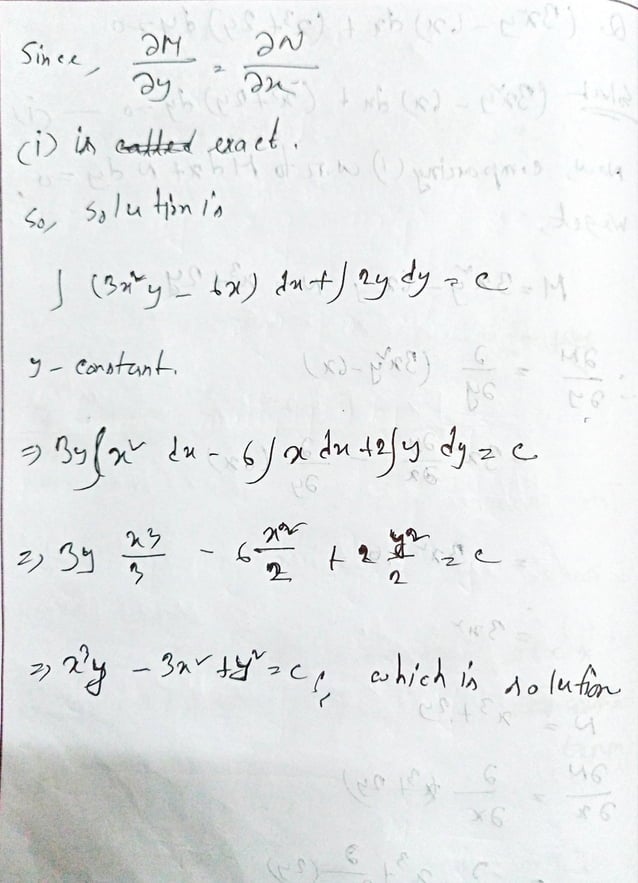 Since, ∂M/∂y = ∂N/∂x
(i) is called exact.
So, solution is
∫ (3x²y - 6x) dx + ∫ 2y dy = c
y - constant.
⇒ 3y ∫ x² dx - 6 ∫ x dx + 2 ∫ y dy = c
⇒ 3y x3/3 - 6 x²/2 + 2 y²/2 = c
⇒ x³y - 3x² + y² = c, which is solution